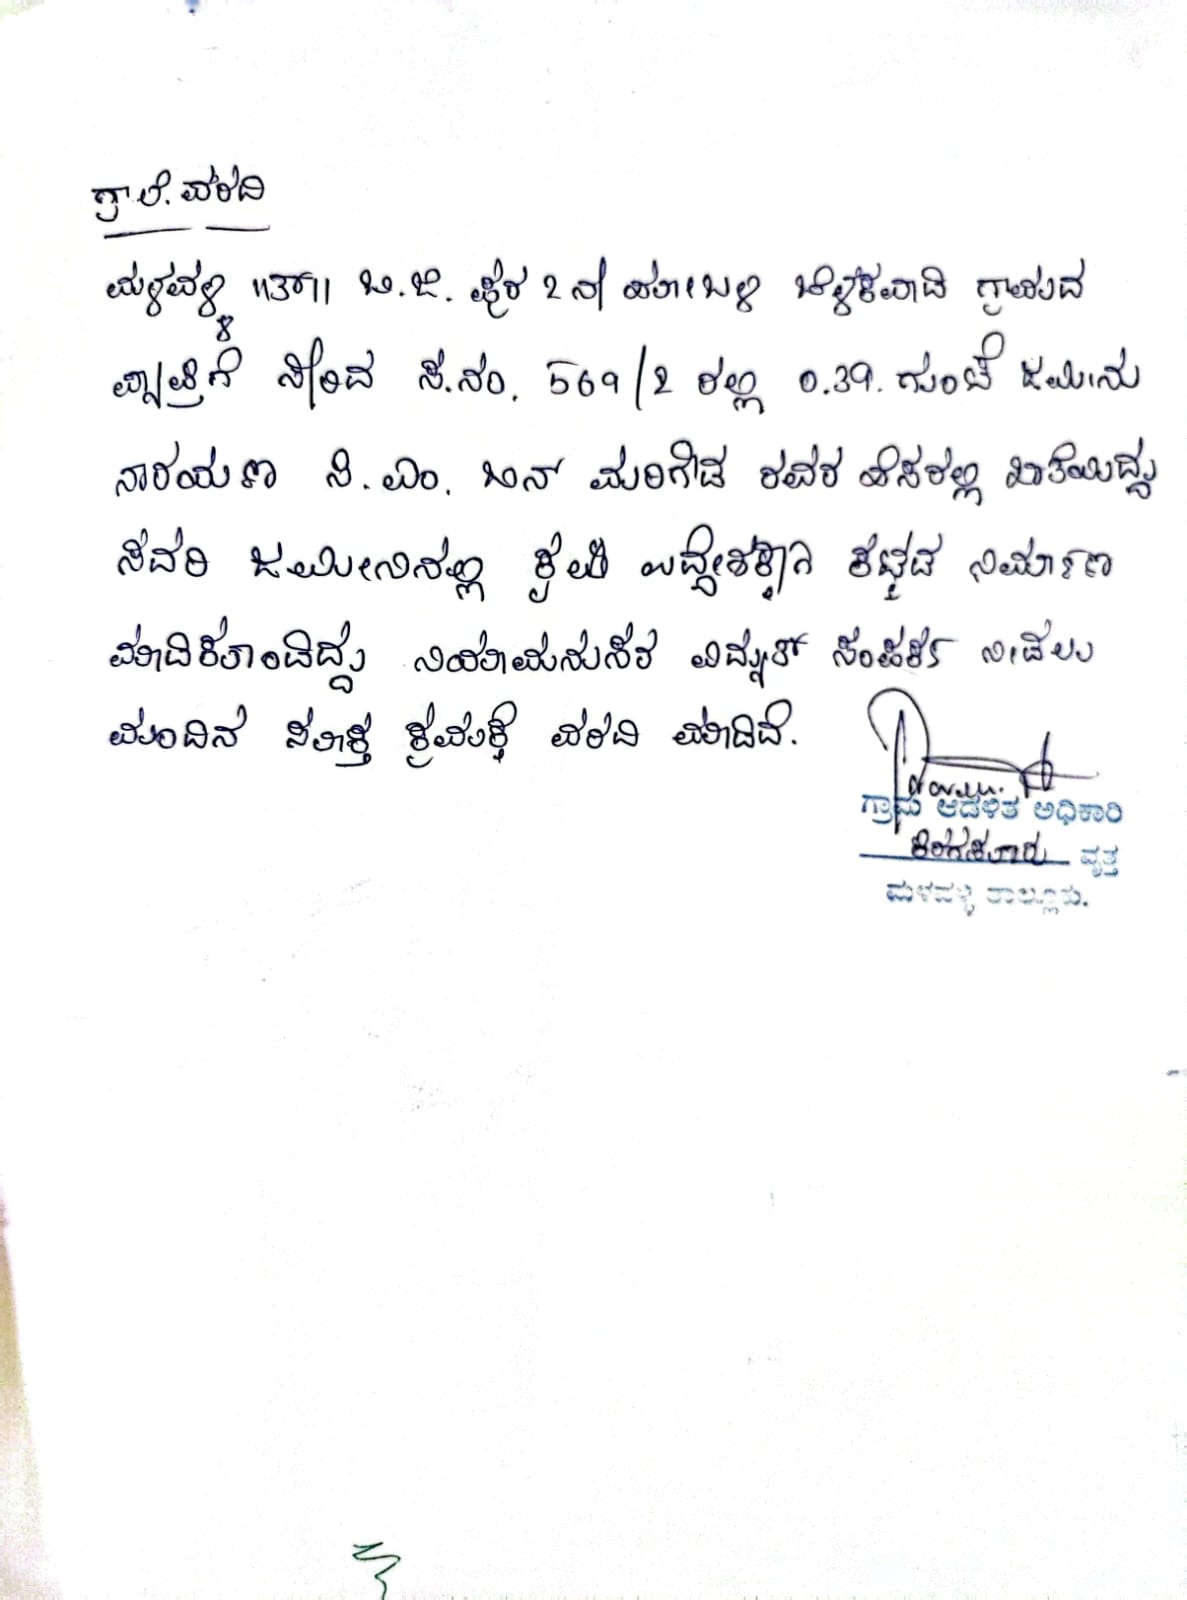 ಗ್ರಾ.ಲೆ. ವರದಿ
ಮಳವಳ್ಳಿ ॥ತಾ॥ ಬಿ.ಜಿ. ಪುರ 2 ನೇ ಹೋಬಳಿ ಬೆಳಕವಾಡಿ ಗ್ರಾಮದ
ವ್ಯಾಪ್ತಿಗೆ ಸೇರಿದ ಸ.ನಂ. 569/2 ರಲ್ಲಿ 0.39. ಗುಂಟೆ ಜಮೀನು
ನಾರಯಣ ಸಿ.ಎಂ. ಬಿನ್ ಮರಿಗೌಡ ರವರ ಹೆಸರಲ್ಲಿ ಖಾತೆಯಿದ್ದು
ಸದರಿ ಜಮೀನಿನಲ್ಲಿ ಕೃಷಿ ಉದ್ದೇಶಕ್ಕಾಗಿ ಕಟ್ಟಡ ನಿರ್ಮಾಣ
ಮಾಡಿಕೊಂಡಿದ್ದು ನಿಯಾಮನುಸಾರ ವಿದ್ಯುತ್ ಸಂಪರ್ಕ ನೀಡಲು
ಮುಂದಿನ ಸೂಕ್ತ ಕ್ರಮಕ್ಕೆ ವರದಿ ಮಾಡಿದೆ.
ಗ್ರಾಮ ಆಡಳಿತ ಅಧಿಕಾರಿ
ವೃತ್ತ
ಮಳವಳ್ಳಿ ತಾಲ್ಲೂಕು.